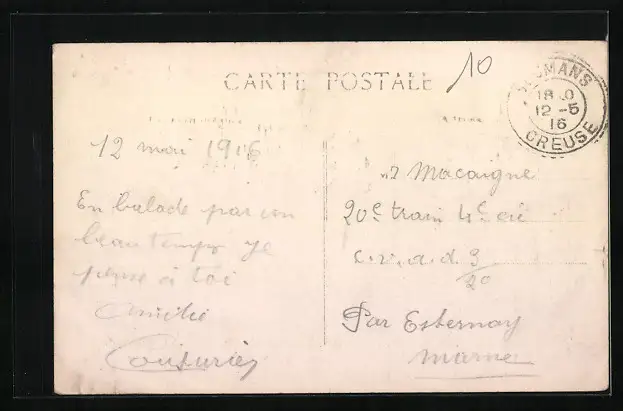 CARTE POSTALE
10
MANS
18 0
12 -5
16
CREUSE
12 mai 1916
En balade par un
beau temps je
pense à toi
Amitié
Mr Macaigne
20e train 4e cie
c.v.a.d. 3/20
Par Esternay
Marne